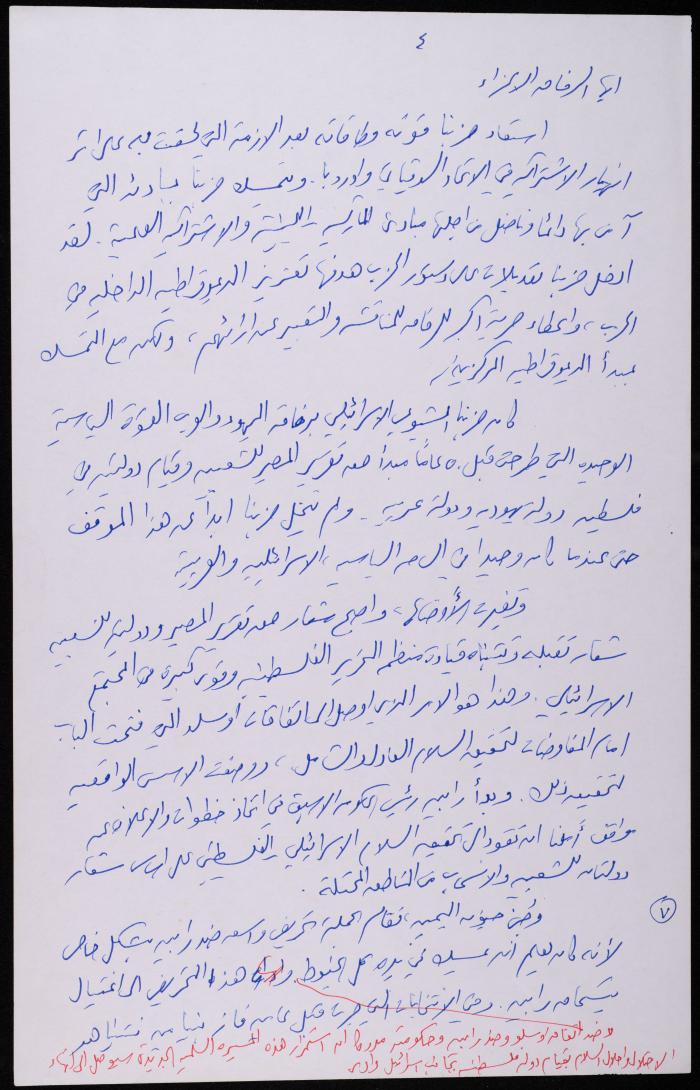 ٤
ايها الرفاق الاعزاء
استعاد حزبنا قوته وطاقاته بعد الازمة التي لحقت به على اثر
انهيار الاشتراكية في الاتحاد السوفياتي واوروبا. ويتمسك حزبنا بمبادئه التي
آمن بها دائما وناضل من اجلها مبادئ الماركسية اللينينية والاشتراكية العلمية. لقد
ادخل حزبنا تعديلات على دستور الحزب هدفها تعزيز الديموقراطية الداخلية في
الحزب، واعطاء حرية اكبر للرفاق للمناقشة والتعبير عن ارائهم، ولكن مع التمسك
بمبدأ الديموقراطية المركزية.
كان حزبنا الشيوعي الاسرائيلي برفاقه اليهود والعرب القوة السياسية
الوحيدة التي طرحت قبل ٥٠ عاماً مبدأ حق تقرير المصير للشعبين وقيام دولتين في
فلسطين دولة يهودية ودولة عربية. ولم يتخل حزبنا ابداً عن هذا الموقف
حتى عندما كان وحيدا في الساحة السياسية، الاسرائيلية والعربية
وتغيرت الأوضاع، واصبح شعار حق تقرير المصير ودولتين للشعبين
شعار تقبله وتتبناه قيادة منظمة التحرير الفلسطينية وقوى كبيرة من المجتمع
الاسرائيلي. وهذا هو الامر الذي اوصل الى اتفاقات أوسلو التي فتحت الباب
امام المفاوضات لتحقيق السلام العادل والشامل، ووضعت الاسس الواقعية
لتحقيق ذلك. وبدأ رابين رئيس الحكومة الاسبق في اتخاذ خطوات والاعلان عن
مواقف أملنا ان تقود الى تحقيق السلام الاسرائيلي الفلسطيني على اساس شعار
دولتان للشعبين والانسحاب من المناطق المحتلة.
وجن جنون اليمين، فقام بحملة تحريض واسعة ضد رابين بشكل خاص
لأنه كان يعلم انه يمسك في يده كل الخيوط. هذا التحريض الى اغتيال
رابين. وفي الانتخابات التي جرت قبل عامين فاز بنيامين نتنياهو
٧
وضد اتفاق اوسلو وضد رابين وحكومته مدركا ان استمرار هذه المسيرة السلمية الجديدة سيوصل الى انهاء
الاحتلال واحلال السلام بقيام دولة فلسطينية بجانب اسرائيل